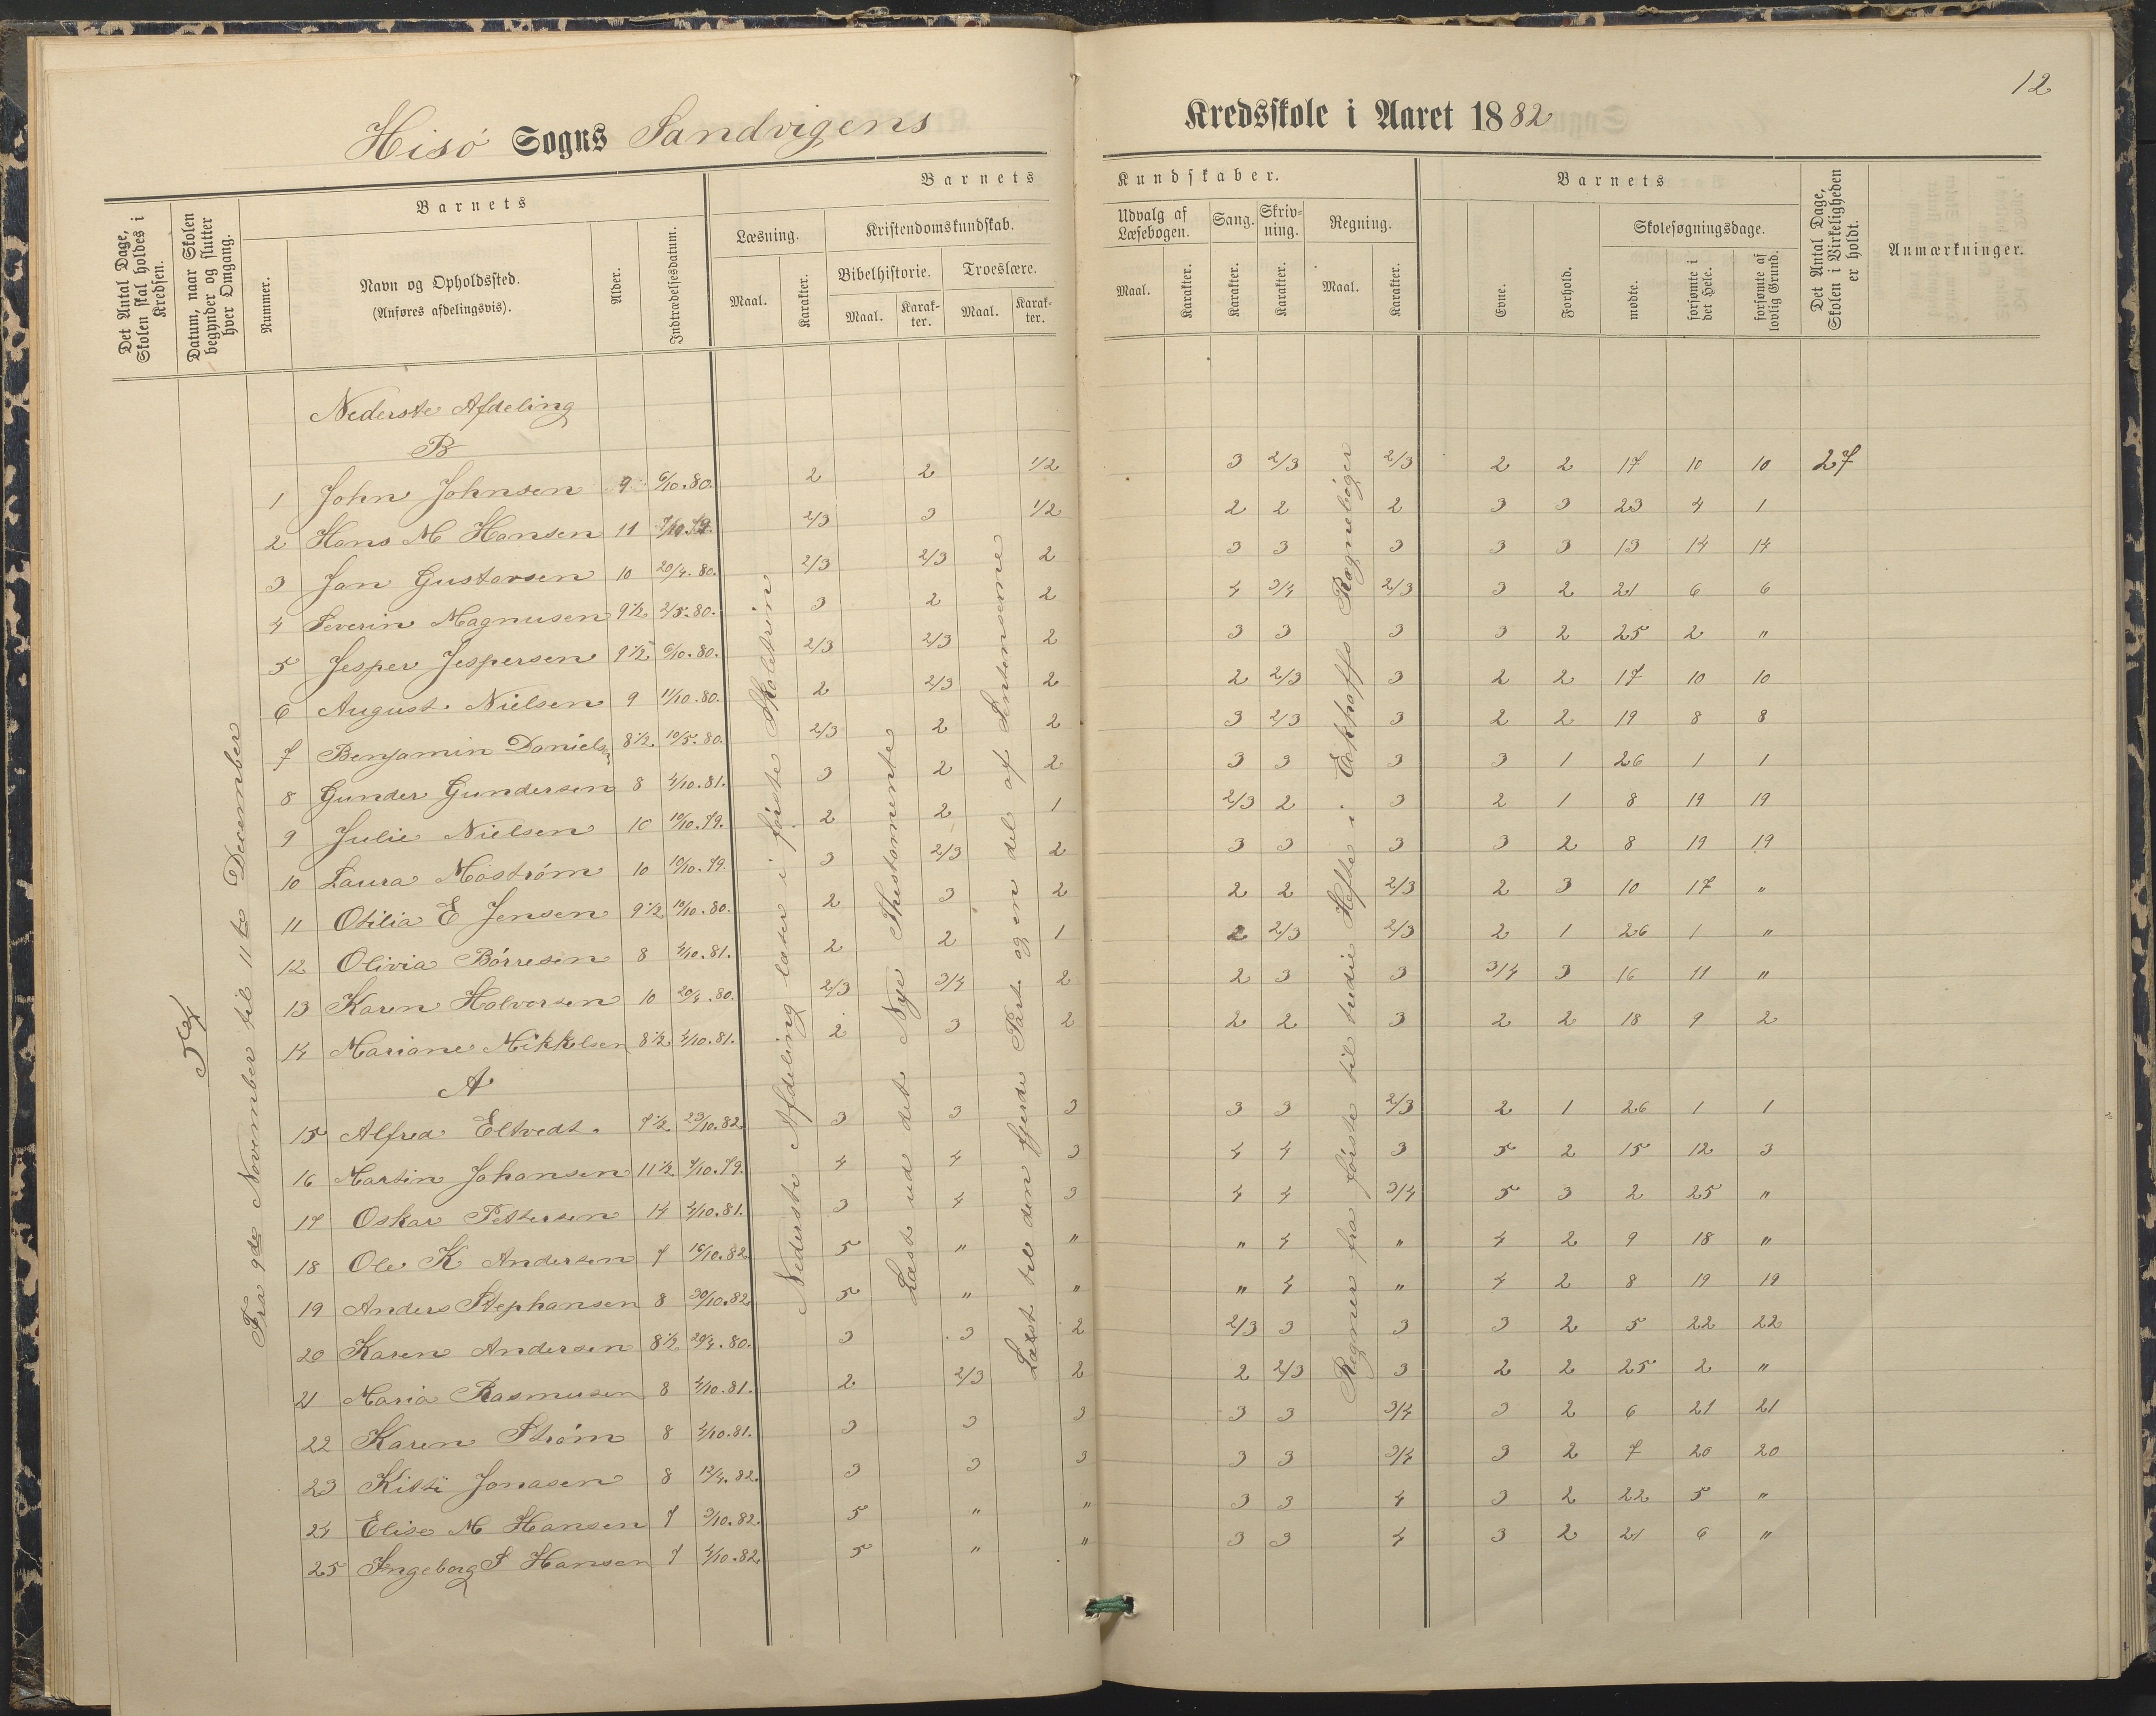 12
Hisö Sogns Sandvigens Kredsskole i Aaret 1882
Det Antal Dage, Skolen skal holdes i Kredsen.
Datum, naar Skolen begynder og slutter hver Omgang.
Barnets
Nummer.
Navn og Opholdssted.
(Anføres afdelingsvis).
Alder.
Indtrædelsesdatum.
Barnets Kundskaber.
Læsning.
Maal.
Karakter.
Kristendomskundskab.
Bibelhistorie.
Maal.
Karakter.
Troeslære.
Maal.
Karakter.
Udvalg af Læsebogen.
Maal.
Karakter.
Sang.
Karakter.
Skrivning.
Karakter.
Regning.
Maal.
Karakter.
Barnets
Evne.
Forhold.
Skolesøgningsdage.
mødte.
forsømte i det Hele.
forsømte af lovlig Grund.
Det Antal Dage, Skolen i Virkeligheden er holdt.
Anmærkninger.
Fra 9de November til 11te December
Nederste Afdeling læser i første Skoletrin
Læst ud det Nye Thestomente
Læst til den fjerde Part og en del af Sentenserne
Regner fra første til tredie Hefte i Eikhoffs Regnebøger
Nederste Afdeling
B
1 John Johnsen 9 6/10.80. 2 2 1/2 3 2/3 2/3 2 2 17 10 10 27
2 Hans M Hansen 11 7/10.79. 2/3 3 1/2 2 2 2 3 3 23 4 1
3 Jan Gustavsen 10 20/4.80. 2/3 2/3 2 3 3 3 3 3 13 14 14
4 Severin Magnusen 9 1/2 2/5.80. 3 2 2 4 3/4 2/3 3 2 21 6 6
5 Jesper Jespersen 9 1/2 6/10.80. 2/3 2/3 2 3 3 3 3 2 25 2 "
6 August Nielsen 9 11/10.80. 2 2/3 2 2 2/3 3 2 2 17 10 10
7 Benjamin Danielsen 8 1/2 10/5.80. 2/3 2 2 3 2/3 3 2 2 19 8 8
8 Gunder Gundersen 8 4/10.81. 3 2 2 3 3 3 3 1 26 1 1
9 Julie Nielsen 10 10/10.79. 2 2 1 2/3 2 3 2 1 8 19 19
10 Laura Mostrøm 10 10/10.79. 3 2/3 2 3 3 3 3 2 8 19 19
11 Otilia E Jensen 9 1/2 10/10.80. 2 3 2 2 2 2/3 2 3 10 17 "
12 Olivia Börresen 8 4/10.81. 2 2 1 2 2/3 2/3 2 1 26 1 "
13 Karen Halvorsen 10 20/4.80. 2/3 3/4 2 2 3 3 3/4 3 16 11 "
14 Mariane Mikkelsen 8 1/2 4/10.81. 2 3 2 2 2 3 2 2 18 9 2
A
15 Alfred Eltvedt. 7 1/2 23/10.82. 3 3 3 3 3 2/3 2 1 26 1 1
16 Martin Johansen 11 1/2 7/10.79. 4 4 3 4 4 3 5 2 15 12 3
17 Oskar Pettersen 14 4/10.81. 3 4 3 4 4 3/4 5 3 2 25 "
18 Ole K Andersen 7 16/10.82 5 " " " 4 " 4 2 9 18 "
19 Anders Stephansen 8 30/10.82. 5 " " " 4 " 4 2 8 19 19
20 Karen Andersen 8 1/2 20/4.80. 3 3 2 2/3 3 3 3 2 5 22 22
21 Maria Rasmusen 8 4/10.81. 2 2/3 2 2 2/3 3 2 2 25 2 "
22 Karen Strøm 8 4/10.81. 3 3 3 3 3 3/4 3 2 6 21 21
23 Kitti Jonasen 8 12/4.82. 3 3 3 3 3 3/4 3 2 7 20 20
24 Elise M Hansen 7 3/10.82. 5 " " 3 3 4 3 2 22 5 "
25 Ingeborg S Hansen 7 4/10.82. 5 " " 3 3 4 3 2 21 6 "